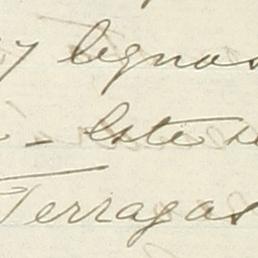 y leguas
- Este
Terragas